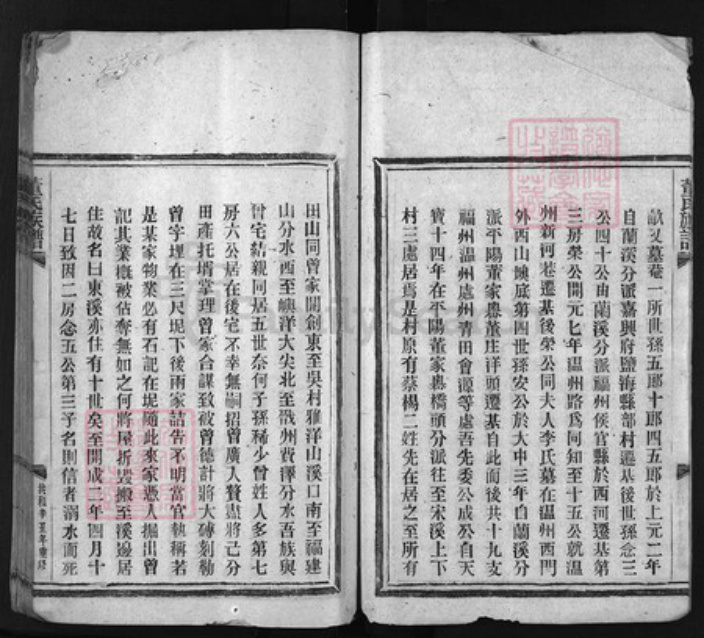 畝又墓菴一所世孫五郎十郎四五郎於上元二年
自蘭溪分派嘉興府鹽海縣部村遷基後世孫念三
公四十公由蘭溪分派福州侯官縣於西河遷基第
三房榮公開元七年溫州路爲同知至十五公就溫
州新河巷遷基後榮公同夫人李氏墓在溫州西門
外西山墺底第四世孫安公於大中三年自蘭溪分
派平陽董家嶴董庄洋頭遷基自此而後共十九支
福州溫州處州青田會源等處吾先委公成公自天
寶十四年在平陽董家嶴橋頭分派往至宋溪上下
村三處居焉是村原有蔡楊二姓先在居之至所有
田山同曾家開創東至吳村雅洋山溪口南至福建
山分水西至嶼洋大尖北至戬州費澤分水吾族與
曾宅結親同居五世奈何子孫稀少曾姓人多第七
房六公居在後宅不幸無嗣招曾廣人贅盡將己分
田產托壻掌理曾家合謀致被曾德計將大磚刻勒
曾字埋在三尺坭下後兩家詰告不明當官執稱若
是某家物業必有石記在坭隨此來家憑人掘出曾
記其業槪被佔奪無如之何將屋折毀搬至溪邊居
住故名曰東溪亦住有十世矣至開成二年四月十
七日致因二房念五公第三子名則信者溺水而死
董氏族譜
董氏族譜